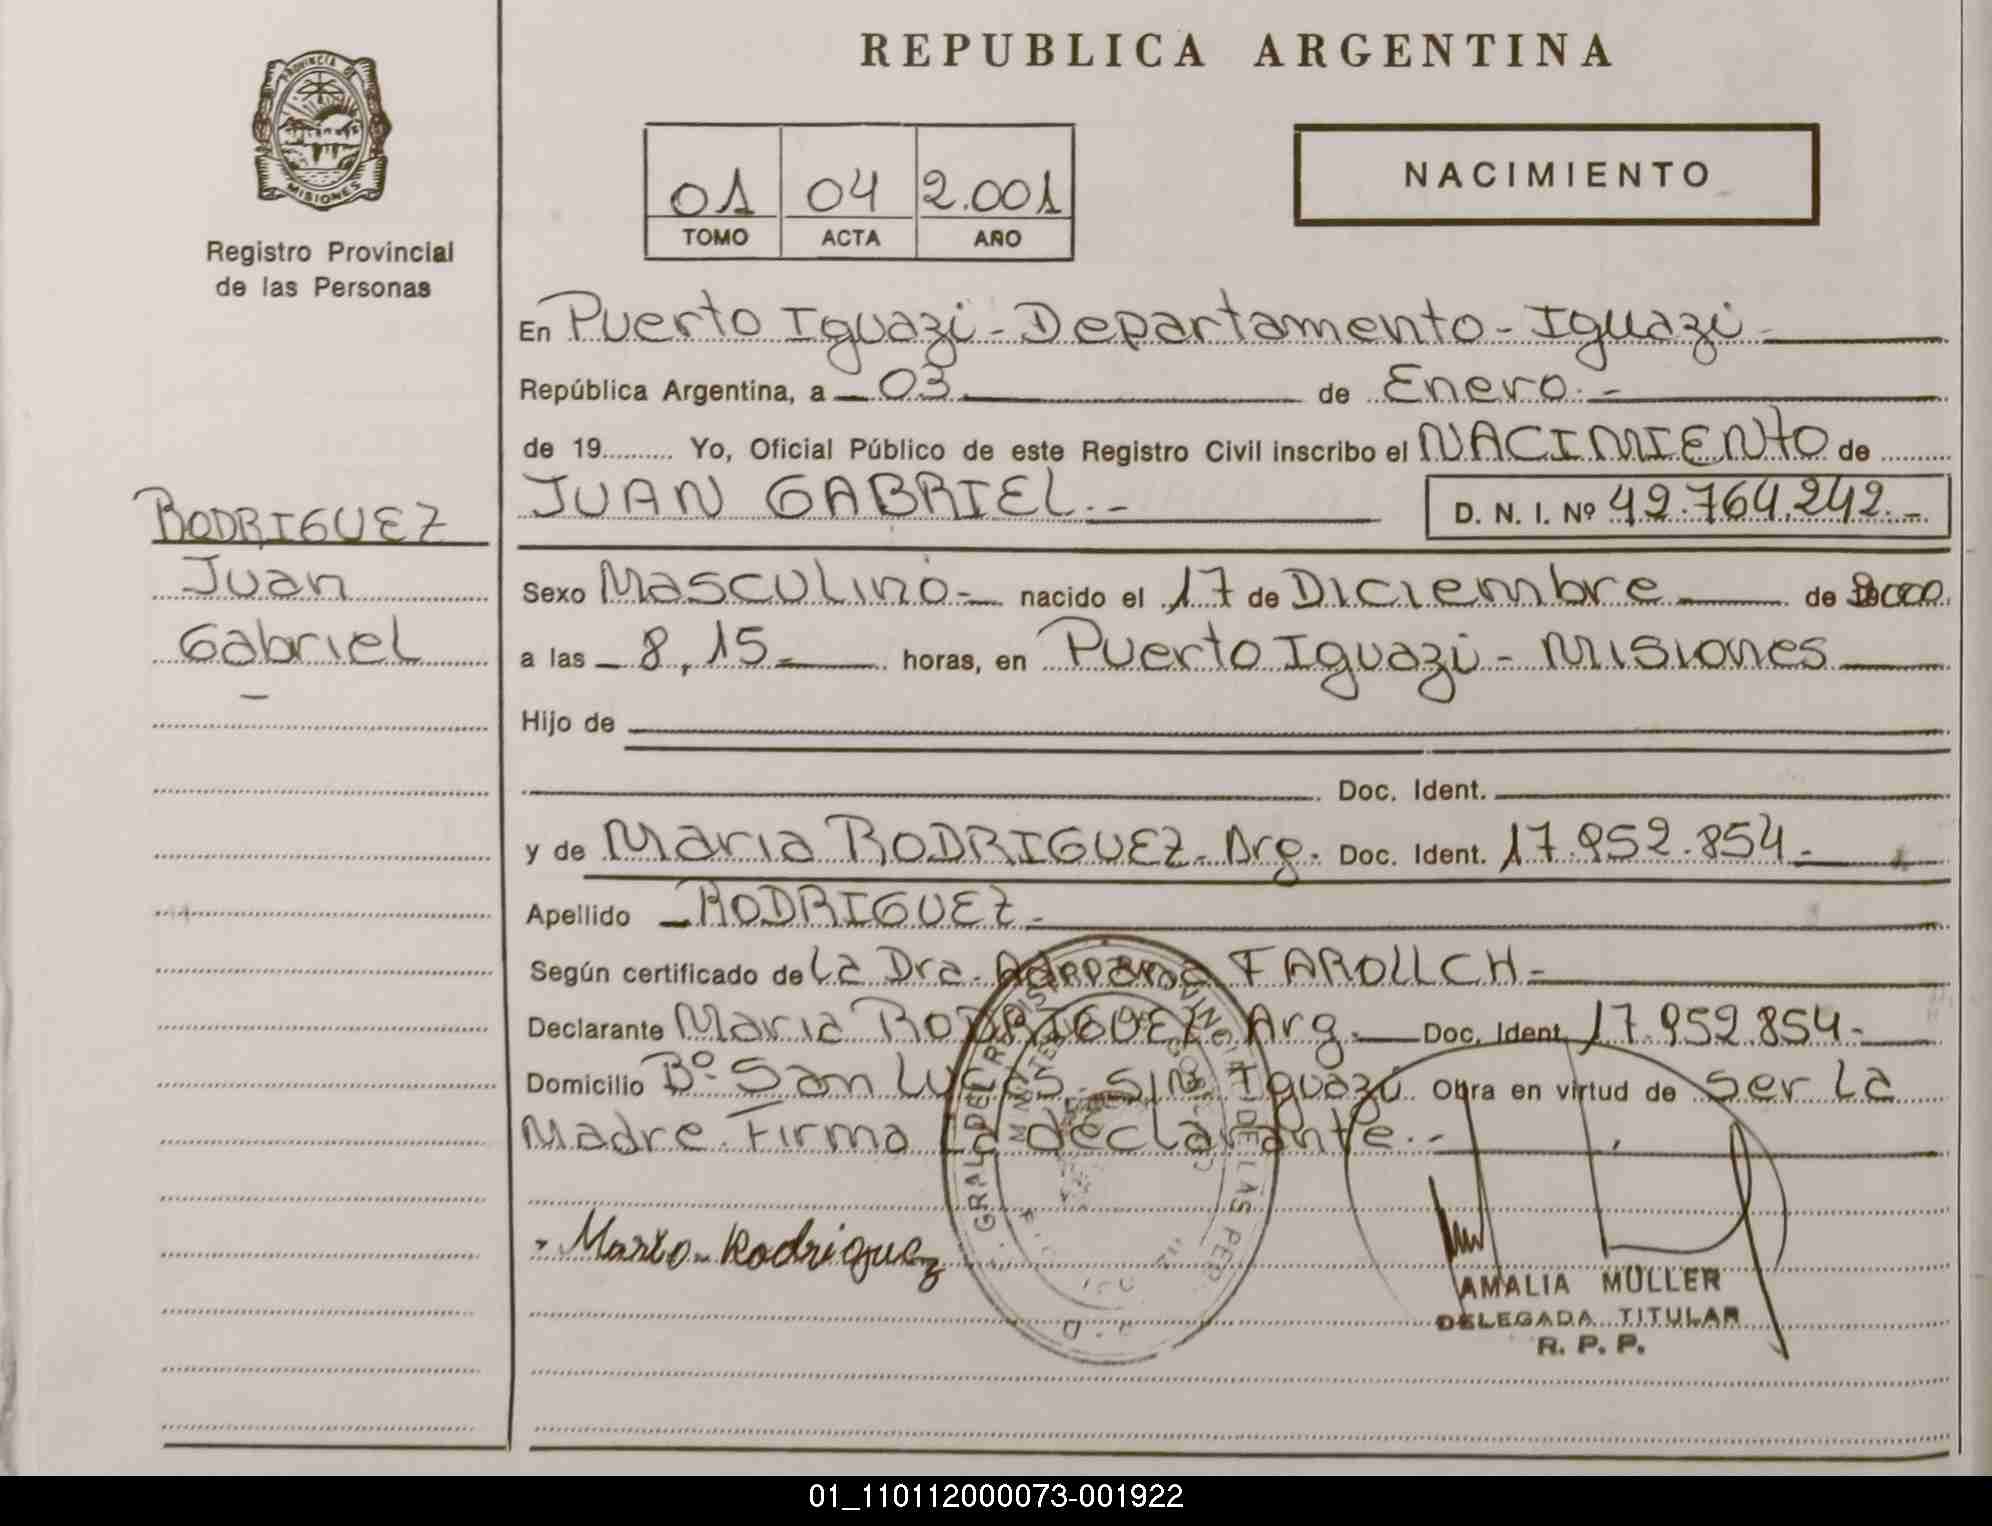 REPUBLICA ARGENTINA
PROVINCIA DE
MISIONES
Registro Provincial
de las Personas
01 04 2.001
TOMO ACTA AÑO
NACIMIENTO
En Puerto Iguazú - Departamento - Iguazú -
República Argentina, a 03 de Enero.-
de 19.......... Yo, Oficial Público de este Registro Civil inscribo el NACIMIENTO de
JUAN GABRIEL.- D. N. I. Nº 42.764.242.-
RODRIGUEZ
Juan
Gabriel
-
Sexo Masculino- nacido el 17 de Diciembre de 2000
a las 8,15- horas, en Puerto Iguazú - Misiones
Hijo de
Doc. Ident.
y de Maria RODRIGUEZ- Arg. Doc. Ident. 17.952.854.-
Apellido RODRIGUEZ-
Según certificado de La Dra. FAROLLCH-
Declarante Maria RODRIGUEZ Arg. Doc. Ident. 17.952.854-
Domicilio Bº San Lucas - S/N Iguazú. Obra en virtud de ser La
Madre. Firma La declarante.-
Maria Rodriguez
AMALIA MULLER
DELEGADA TITULAR
R. P. P.
01_110112000073-001922